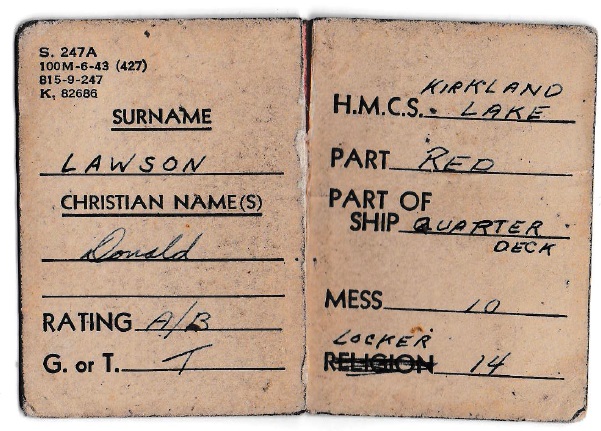 S. 247A
100M-6-43 (427)
815-9-247
K, 82686
SURNAME
LAWSON
CHRISTIAN NAME(S)
Donald
RATING A/B
G. or T. T
KIRKLAND
H.M.C.S. LAKE
PART RED
PART OF
SHIP QUARTER
DECK
MESS 10
LOCKER
RELIGION 14